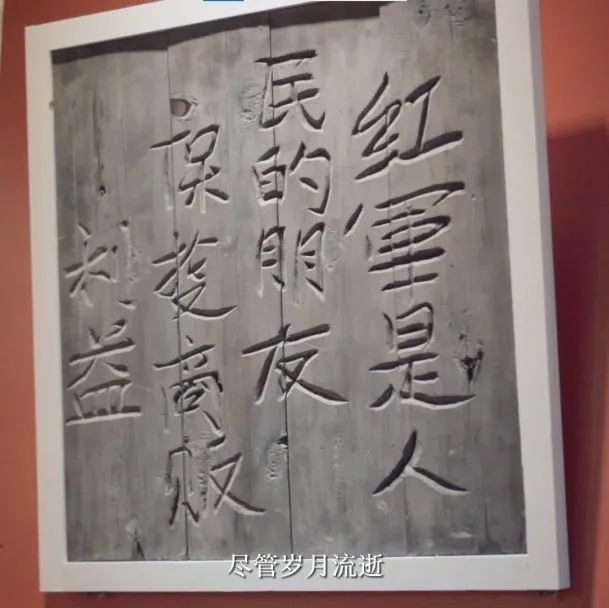 红軍是人
民的朋友
保护商贩
利益
尽管岁月流逝